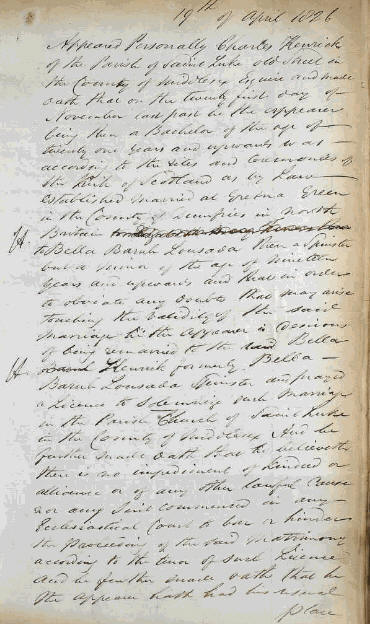 19th of April 1826
Appeared Personally Charles Henrick
of the Parish of Saint Luke old Street in
the County of Middlesex Esquire and made
oath that on the twenty first day of
November last past he the appearer
being then a Bachelor of the age of
twenty one years and upwards was
according to the rites and ceremonies of
the Kirk of Scotland as by Law
established married at Gretna Green
in the County of Dumfries in North
Britain
to Bella Baruh Lousada then a spinster
but a minor of the age of nineteen
years and upwards and that in order
to obviate any doubts that may arise
touching the validity of the said
marriage he the appearer is desirous
of being remarried to the said Bella
Henrick formerly Bella
Baruh Lousada Spinster and prayed
a Licence to solemnize such marriage
in the Parish Church of Saint Luke
in the County of Middlesex And he
further made oath that he believeth
there is no impediment of kindred or
alliance or of any other lawful cause
nor any suit commenced in any
Ecclesiastical Court to bar or hinder
the Proceeding of the said matrimony
according to the tenor of such Licence
And he further made oath that he
the appearer hath had his usual
place